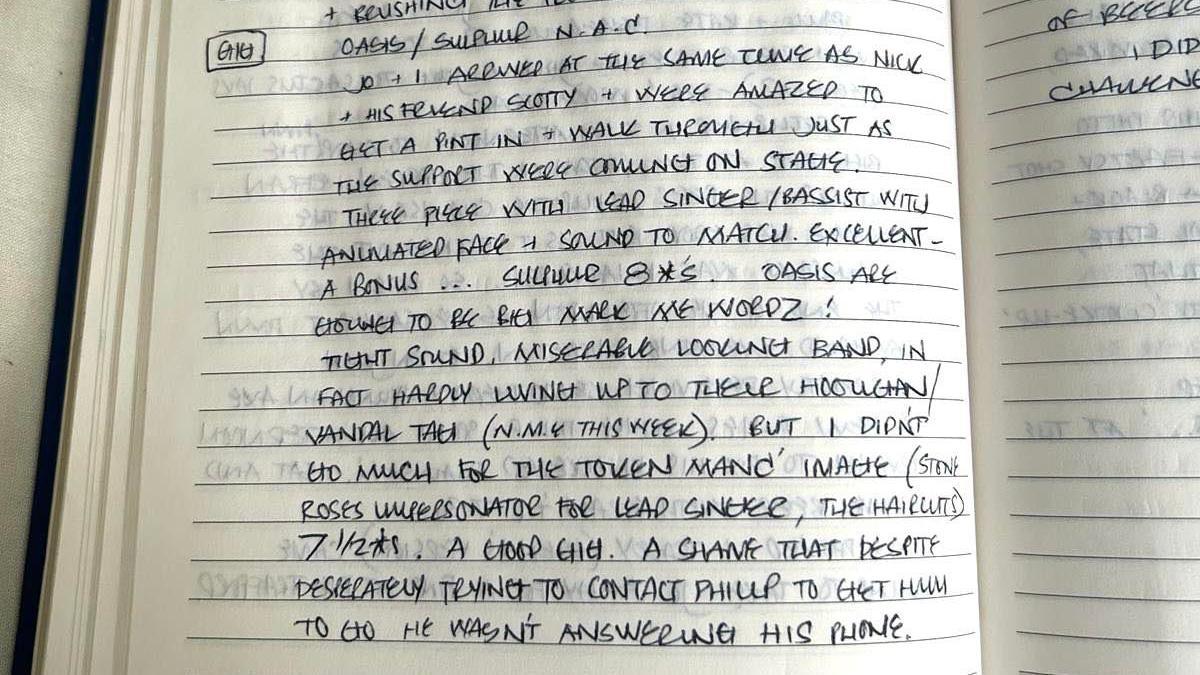 + BRUSHING THE
GIG OASIS / SULPHUR N.A.C.
JO + I ARRIVED AT THE SAME TIME AS NICK
+ HIS FRIEND SCOTTY + WERE AMAZED TO
GET A PINT IN + WALK THROUGH JUST AS
THE SUPPORT WERE COMING ON STAGE.
THREE PIECE WITH LEAD SINGER / BASSIST WITH
ANIMATED FACE + SOUND TO MATCH. EXCELLENT -
A BONUS ... SULPHUR 8*'S. OASIS ARE
GOING TO BE BIG MARK ME WORDZ!
TIGHT SOUND, MISERABLE LOOKING BAND, IN
FACT HARDLY LIVING UP TO THEIR HOOLIGAN/
VANDAL TAG (N.M.E THIS WEEK). BUT I DIDN'T
GO MUCH FOR THE TOKEN 'MANC' IMAGE (STONE
ROSES IMPERSONATOR FOR LEAD SINGER, THE HAIRCUTS)
7 1/2*s. A GOOD GIG. A SHAME THAT DESPITE
DESPERATELY TRYING TO CONTACT PHILIP TO GET HIM
TO GO HE WASN'T ANSWERING HIS PHONE.
OF BEERS
I DID